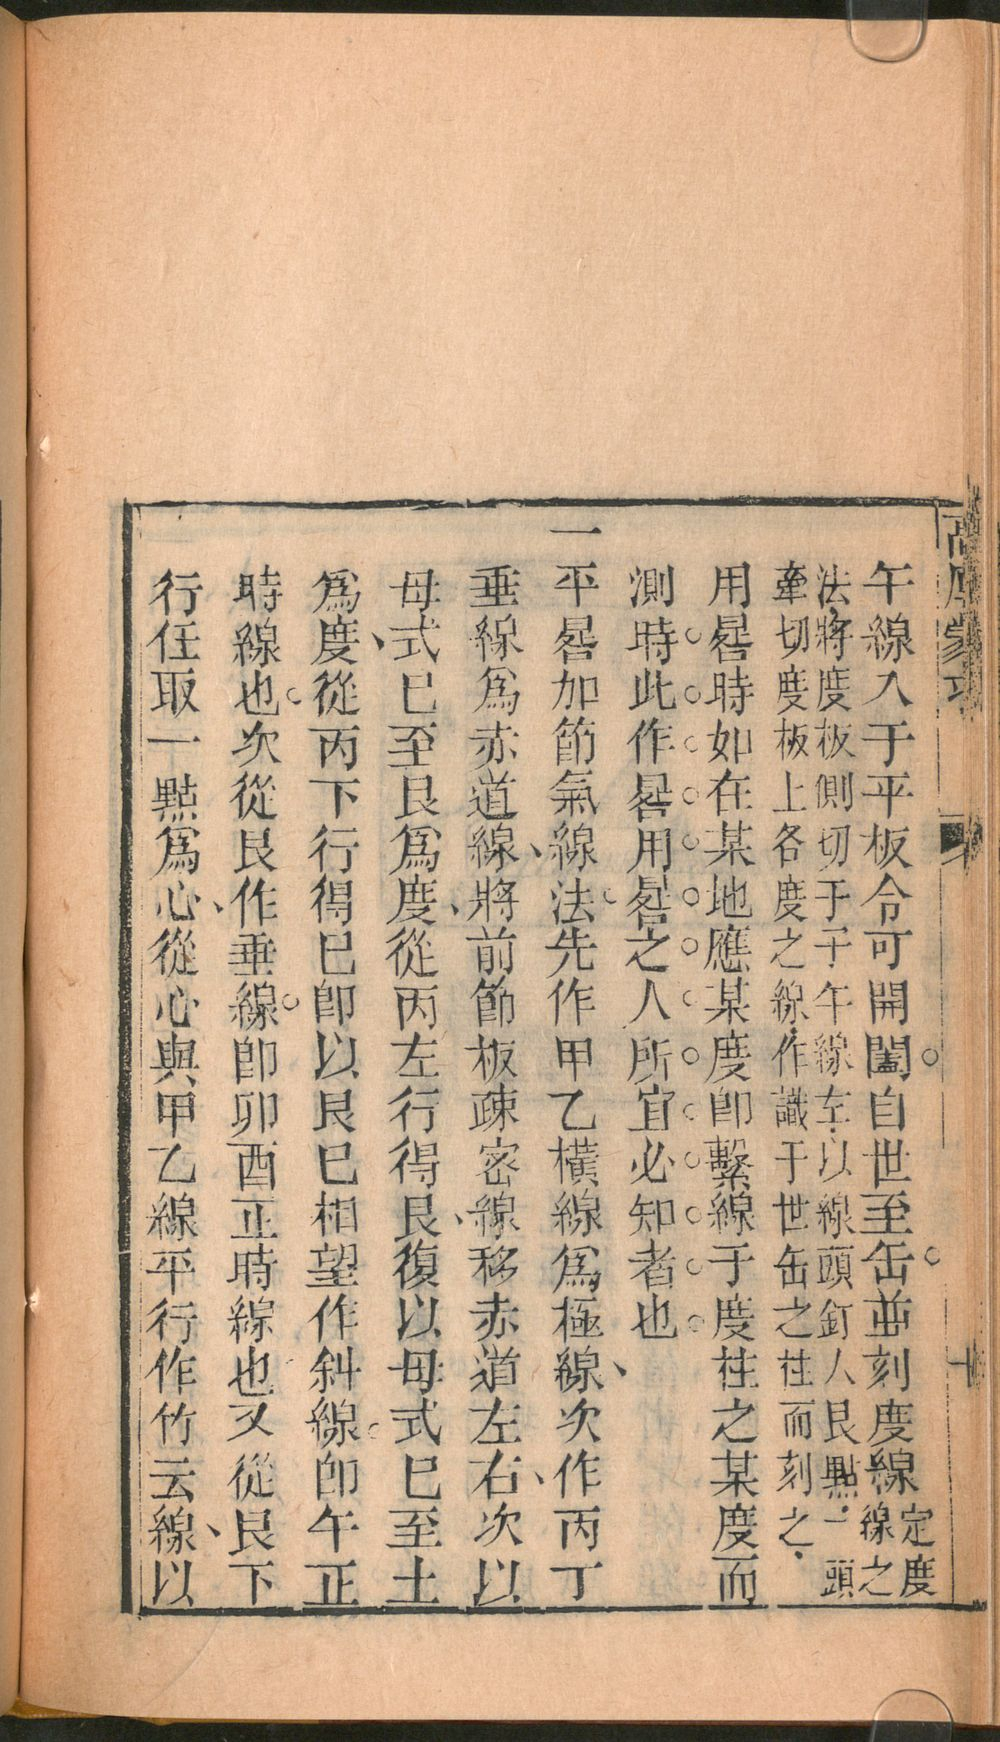 高厚蒙求
十
午線入于平板令可開闔。自世至缶。並刻度線定度
線之
法、將度板側切于子午線左、以線頭釘入艮點、一頭
牽切度板上各度之線、作識于世缶之柱而刻之、
用晷時如在某地應某度卽繫線于度柱之某度而
測時。此。作。晷。用。晷。之。人。所。宜。必。知。者。也。
一平晷加節氣線法。先作甲乙橫線爲極線、次作丙丁
垂線爲赤道線、將前節板疎密線移赤道左右、次以
母式巳至艮爲度、從丙左行得艮、復以母式巳至土
爲度、從丙下行得巳卽以艮巳相望作斜線。卽午正
時線也。次從艮作垂線。卽卯酉正時線也又從艮下
行任取一點爲心、從心與甲乙線平行作竹云線、以